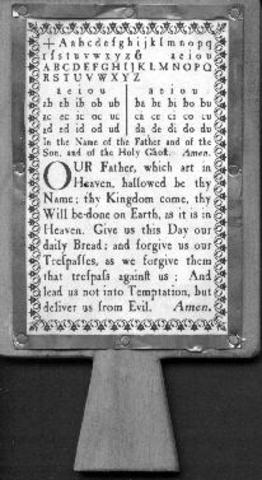 + Aabcdefghijklmnopq
rſstuvwxyz& aeiou
ABCDEFGHIJKLMNOPQ
RSTUVWXYZ
a e i o u a e i o u
ab eb ib ob ub ba be bi bo bu
ac ec ic oc uc ca ce ci co cu
ad ed id od ud da de di do du
In the Name of the Father and of the
Son, and of the Holy Ghoſt. Amen.
OUR Father, which art in
Heaven, hallowed be thy
Name; thy Kingdom come, thy
Will be done on Earth, as it is in
Heaven. Give us this Day our
daily Bread; and forgive us our
Treſpaſſes, as we forgive them
that treſpaſs againſt us; And
lead us not into Temptation, but
deliver us from Evil. Amen.